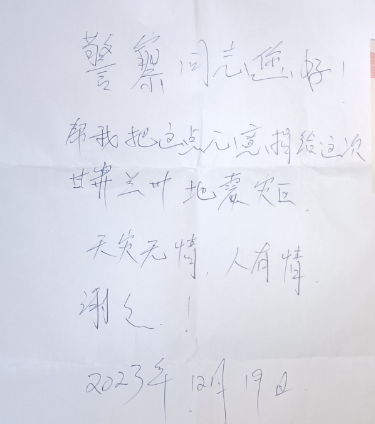 警察同志您好！
帮我把这点心意捐给这次
甘肃兰州地震灾区.
天灾无情，人有情
谢谢！
2023年12月19日